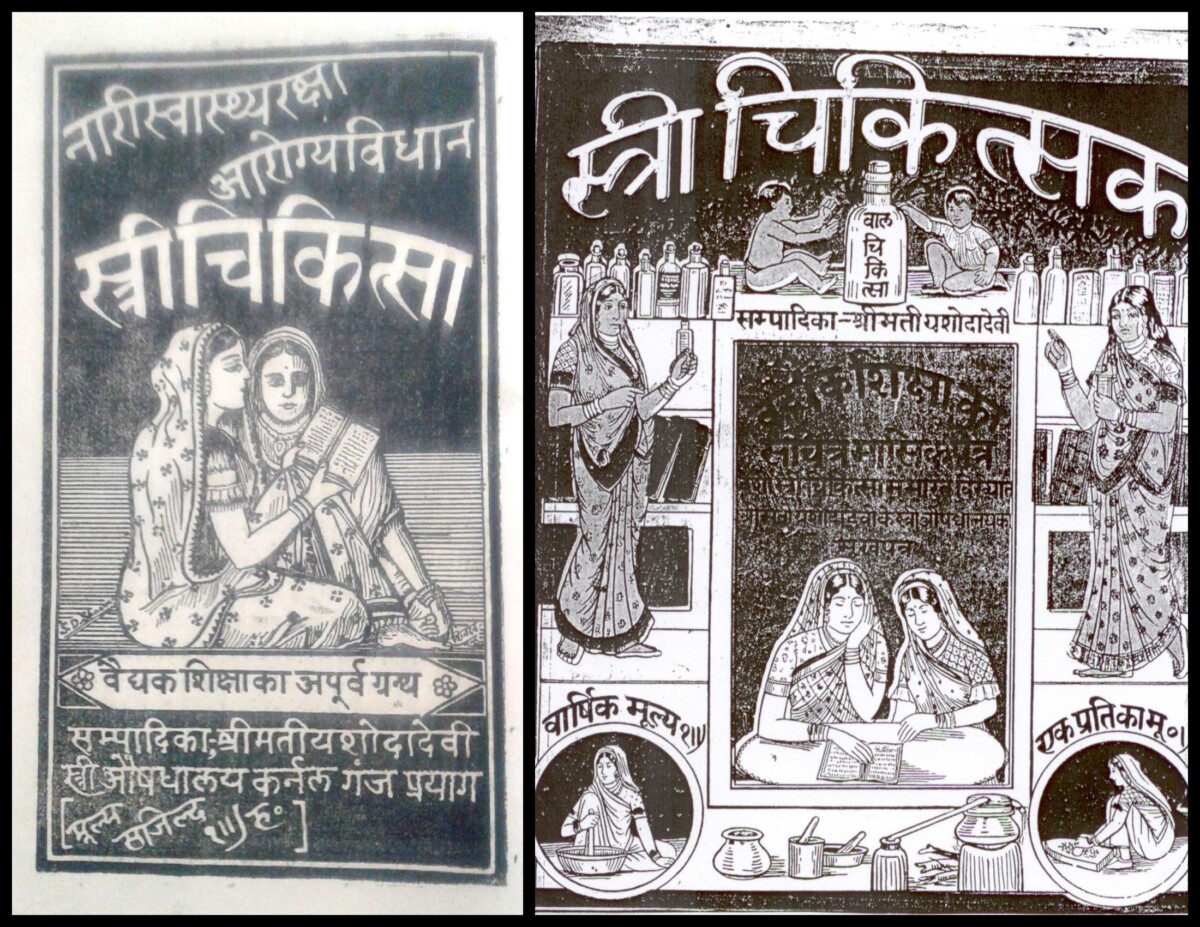 नारीस्वास्थ्यरक्षा
आरोग्यविधान
स्त्रीचिकित्सा
वैद्यक शिक्षाका अपूर्व ग्रन्थ
सम्पादिका; श्रीमतीयशोदादेवी
स्त्री औषधालय कर्नल गंज प्रयाग
[मूल्य
सजिल्द १॥) रु॰ ]
स्त्री चिकित्सक
वाल
चि
कि
त्सा
सम्पादिका-श्रीमती यशोदादेवी
शिक्षा का
सचित्र मासिक पत्र
वार्षिक मूल्य १॥)
एक प्रति का मू०